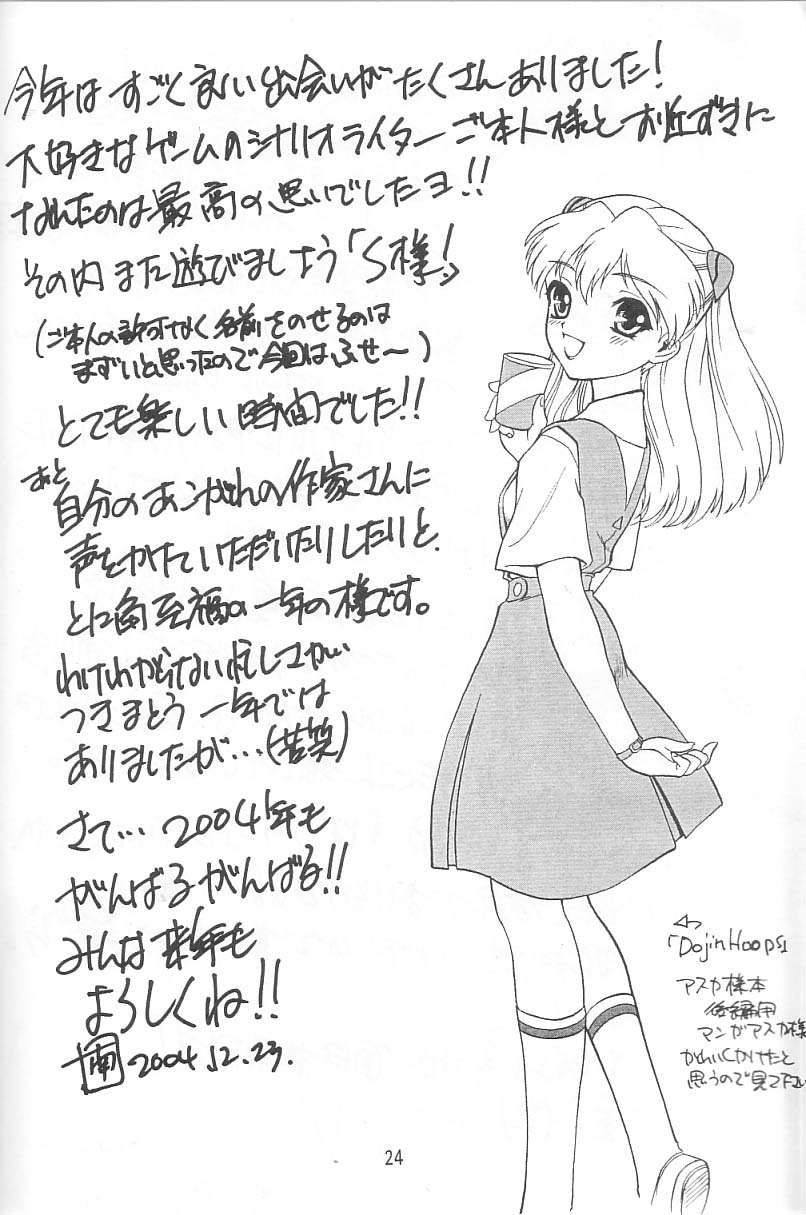 今年はすごく良い出会いがたくさんありました!
大好きなゲームのシナリオライターご本人様とお近ずきに
なれたのは最高の思いでしたヨ!!
その内また遊びましょう「S様!」
(ご本人の許可なく名前をのせるのは
まずいと思ったので今回はふせ〜)
とても楽しい時間でした!!
あと
自分のあこがれの作家さんに
声をかけていただいたりしたりと、
とに角至福の一年の様です。
わけわからない忙しさがい
つきまとう一年では
ありましたが…(苦笑)
さて…2004年も
がんばるがんばる!!
みんな来年も
よろしくね!!
南 2004.12.23.
「DojinHoops」
アスカ様本
後編用
マンガアスカ様
かわいくかけたと
思うので見て下さい
24